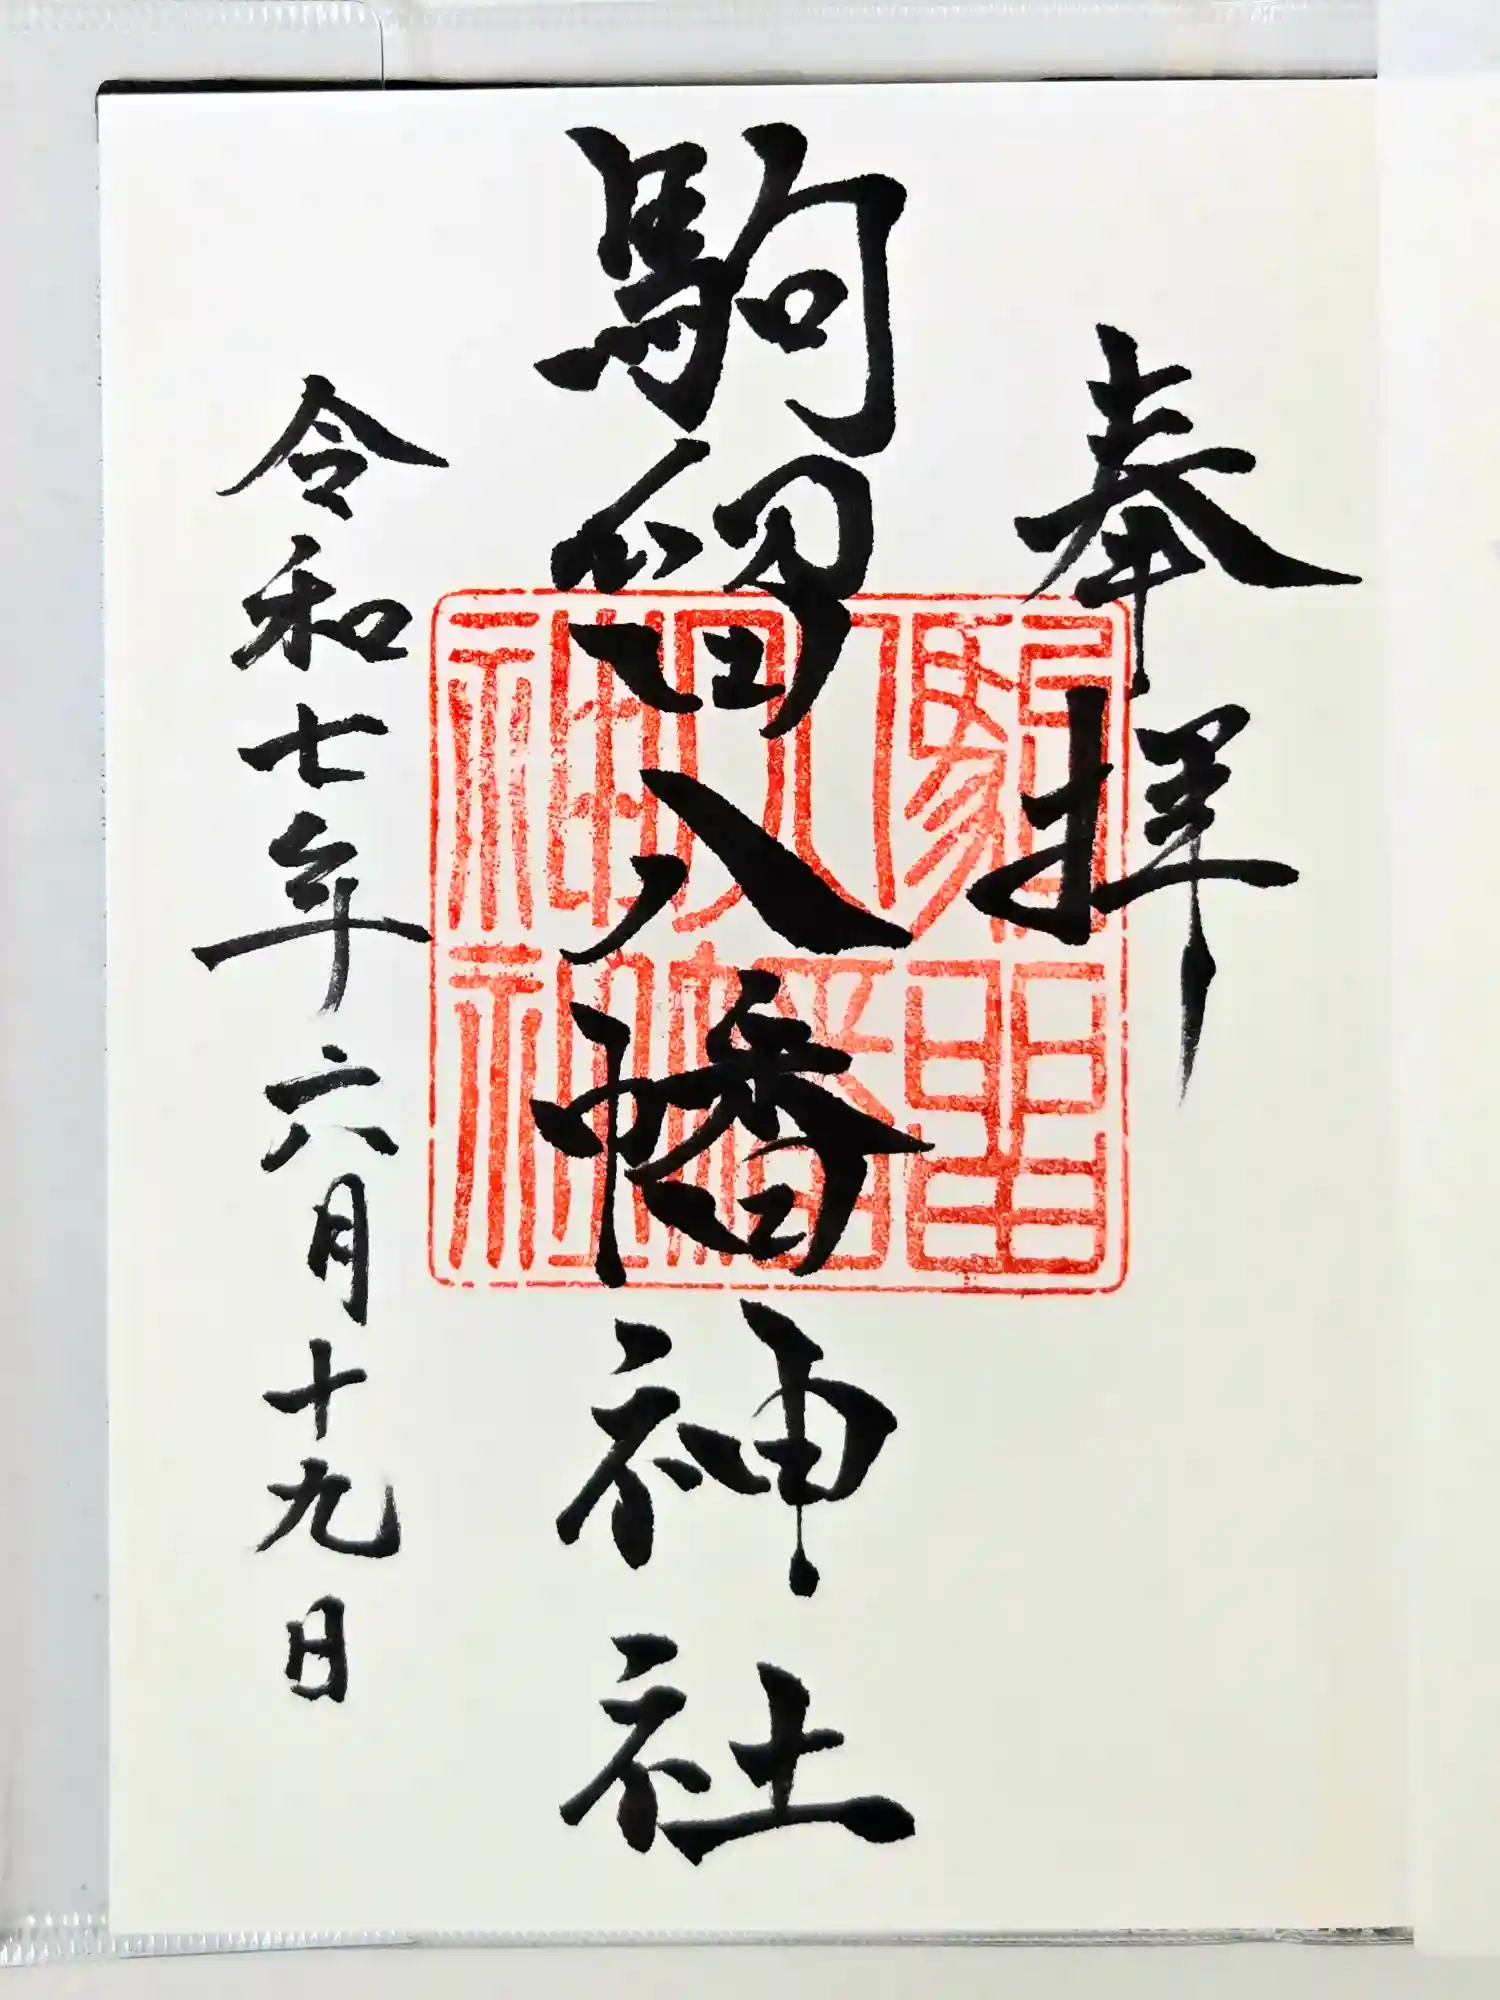 奉拝
駒留八幡神社
駒留八幡神社
令和七年六月十九日